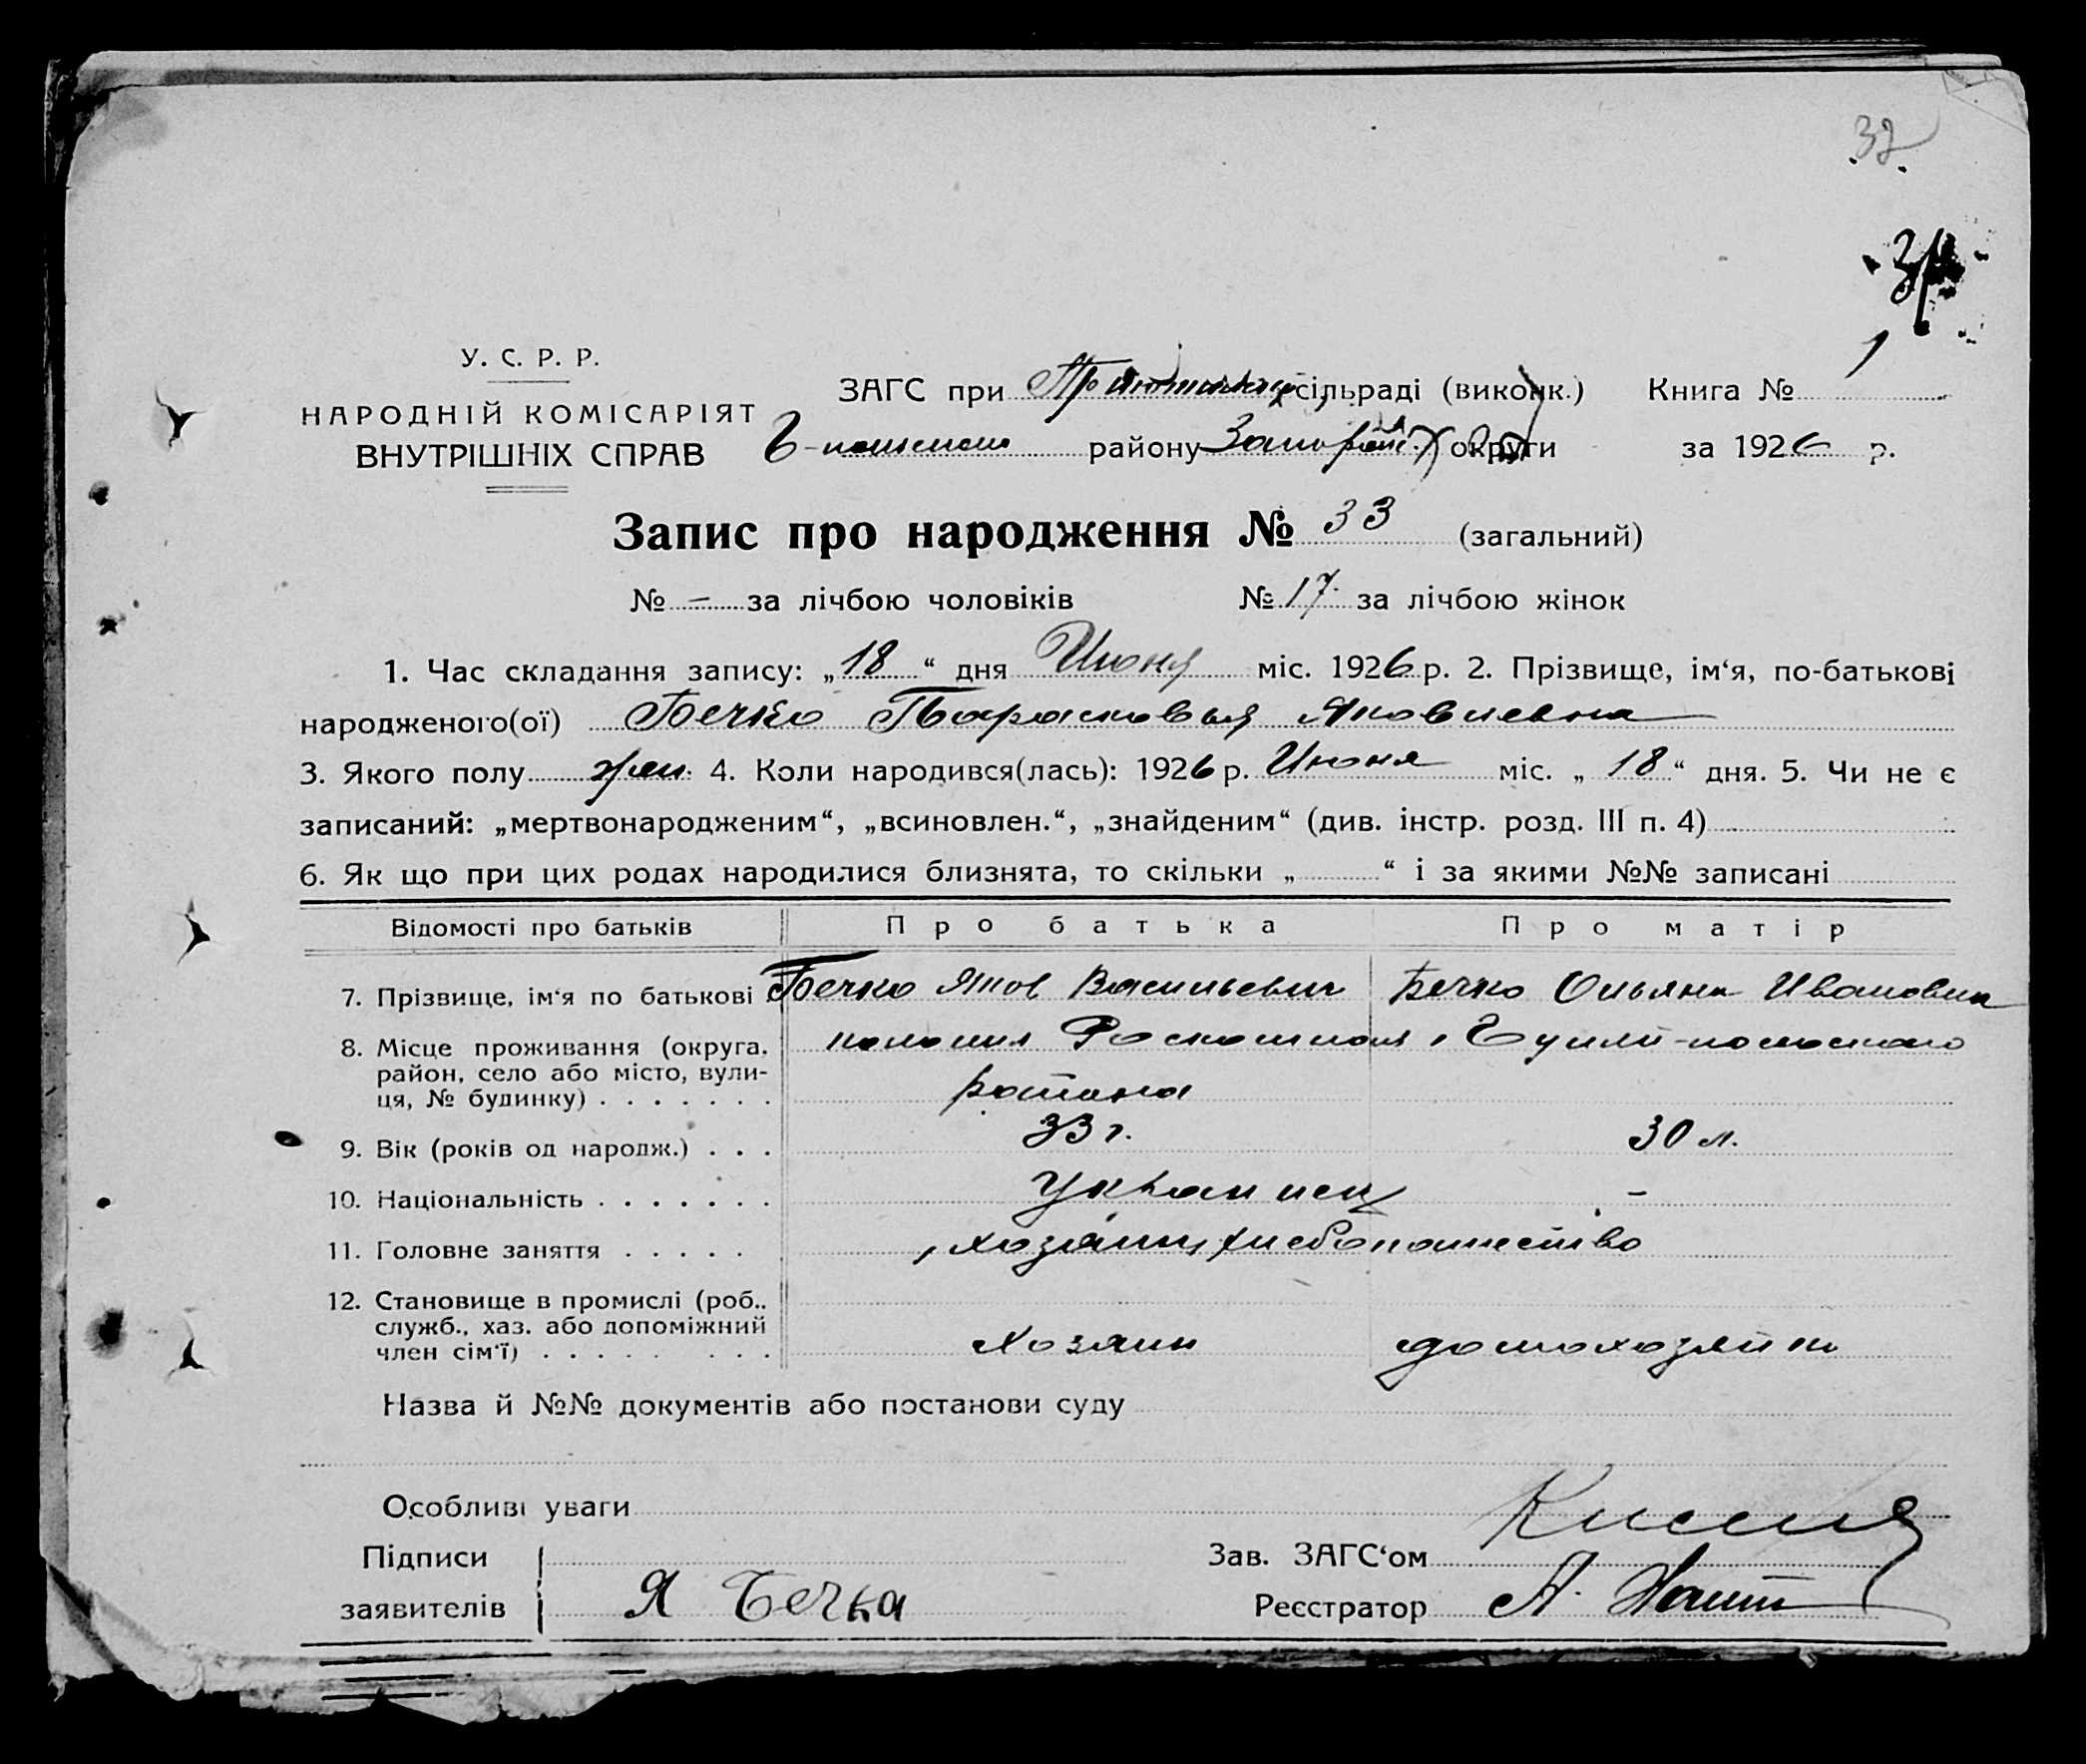 32
У. С. Р. Р.
НАРОДНІЙ КОМІСАРІЯТ
ВНУТРІШНІХ СПРАВ
ЗАГС при сільраді (виконк.) Книга № 1
району Запоріж округи за 1926 р.
Запис про народження № 33 (загальний)
№ – за лічбою чоловіків № 17 за лічбою жінок
1. Час складання запису: „18“ дня Июня міс. 1926 р. 2. Прізвище, ім‘я, по-батькові
народженого(ої) Бечко Парасковья Яковлевна
3. Якого полу жен. 4. Коли народився(лась): 1926 р. Июня міс. „18“ дня. 5. Чи не є
записаний: „мертвонародженим“, „всиновлен.“, „знайденим“ (див. інстр. розд. III п. 4)
6. Як що при цих родах народилися близнята, то скільки „ “ і за якими №№ записані
Відомості про батьків Про батька Про матір
7. Прізвище, ім‘я по батькові Бечко Яков Васильевич Бечко Ульяна Ивановна
8. Місце проживання (округа, колония Роскошная, Гуляй-польского
район, село або місто, вули-
ця, № будинку) . . . . . . . района
9. Вік (років од народж.) . . . 33 г. 30 л.
10. Національність . . . . . . . Украинец –
11. Головне заняття . . . . . хлебопашество
12. Становище в промислі (роб.,
служб., хаз. або допоміжний
член сім‘ї) . . . . . . . . Хозяин домохозяйка
Назва й №№ документів або постанови суду
Особливі уваги
Підписи
Зав. ЗАГС‘ом
заявителів Я Бечка Реєстратор А.